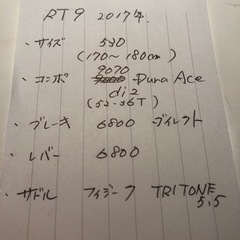 RT9 2017年.
・サイズ 530
(170〜180cm)
・コンポ 9070 Dura Ace
di2
(52-36T)
・ブレーキ 6800 ダイレクト
・レバー 6800
・サドル フィジーク TRITONE
5.5